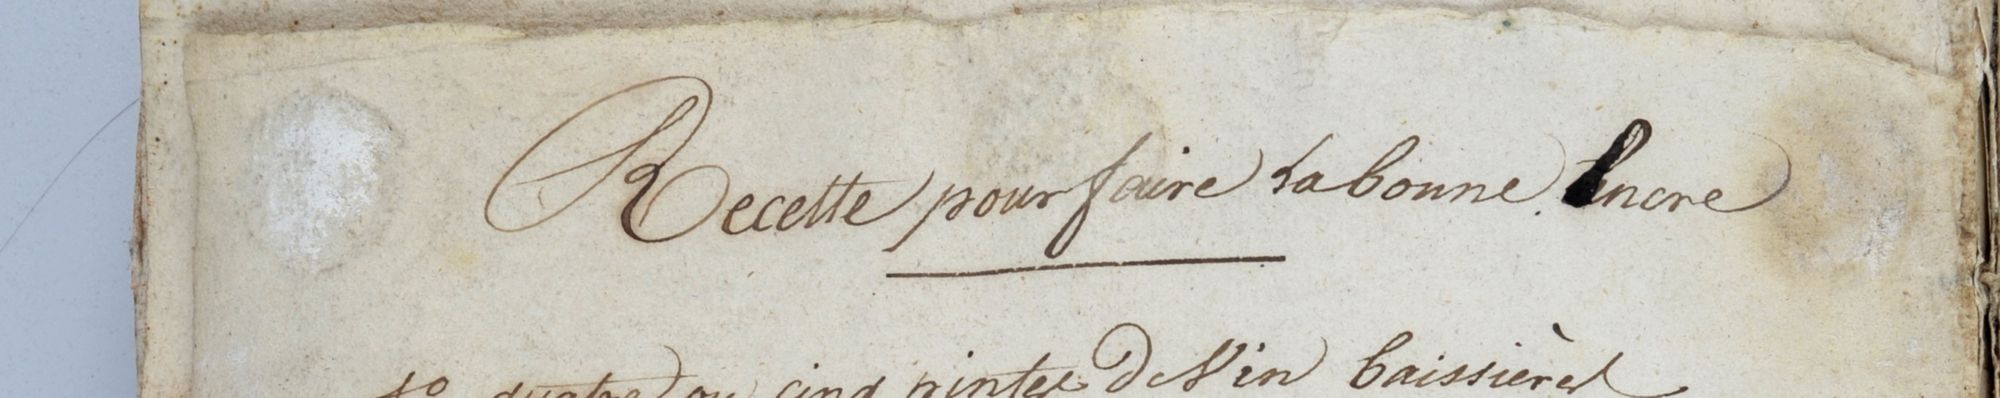 Recette pour faire La bonne Encre
1º quatre ou cinq pintes De Vin baissières